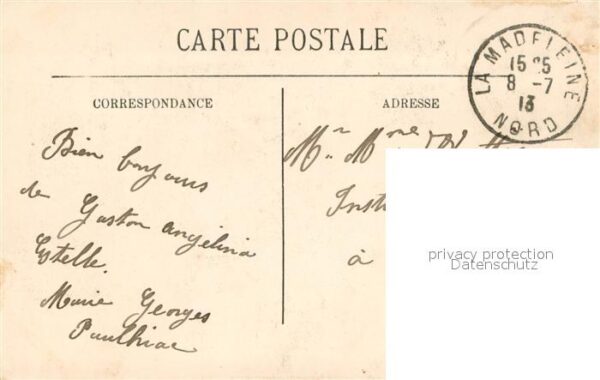 CARTE POSTALE
CORRESPONDANCE
ADRESSE
LA MADELEINE
15 25
8 -7
13
NORD
Bien bonjours
de Gaston Angelina
Estelle
Marie Georges
Paulhiac
Mr Mme
Inst
à
privacy protection
Datenschutz